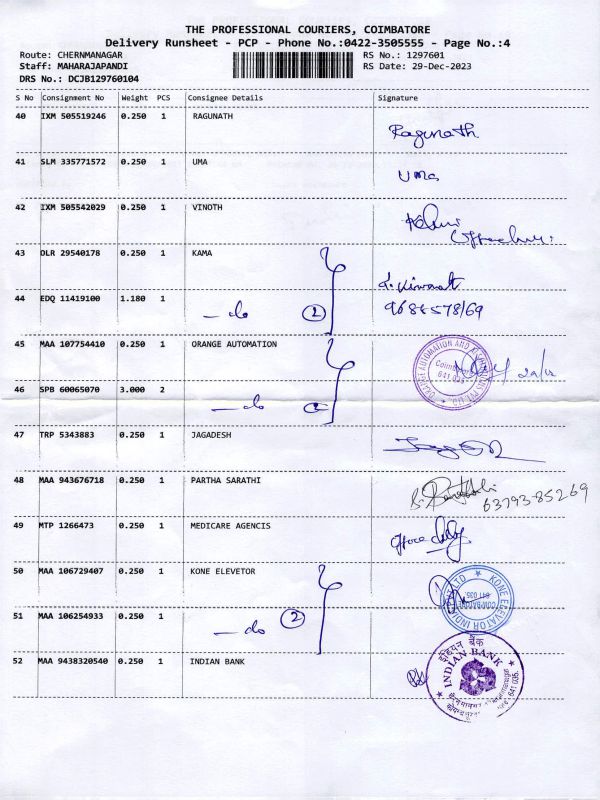 THE PROFESSIONAL COURIERS, COIMBATORE
Delivery Runsheet - PCP - Phone No.:0422-3505555 - Page No.:4
Route: CHERNMANAGAR RS No.: 1297601
Staff: MAHARAJAPANDI RS Date: 29-Dec-2023
DRS No.: DCJB129760104
S No Consignment No Weight PCS Consignee Details Signature
40 IXM 505519246 0.250 1 RAGUNATH Ragunath
41 SLM 335771572 0.250 1 UMA Uma
42 IXM 505542029 0.250 1 VINOTH
43 DLR 29540178 0.250 1 KAMA
44 EDQ 11419100 1.180 1 — do 2
45 MAA 107754410 0.250 1 ORANGE AUTOMATION
46 SPB 60065070 3.000 2 — do
47 TRP 5343883 0.250 1 JAGADESH
48 MAA 943676718 0.250 1 PARTHA SARATHI 63793-85269
49 MTP 1266473 0.250 1 MEDICARE AGENCIS
50 MAA 106729407 0.250 1 KONE ELEVETOR KONE ELEVATOR INDIA
51 MAA 106254933 0.250 1 — do 2
52 MAA 9438320540 0.250 1 INDIAN BANK इंडियन बैंक INDIAN BANK